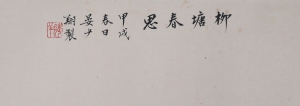 柳塘春思
甲戌
春日
晏少
翔製